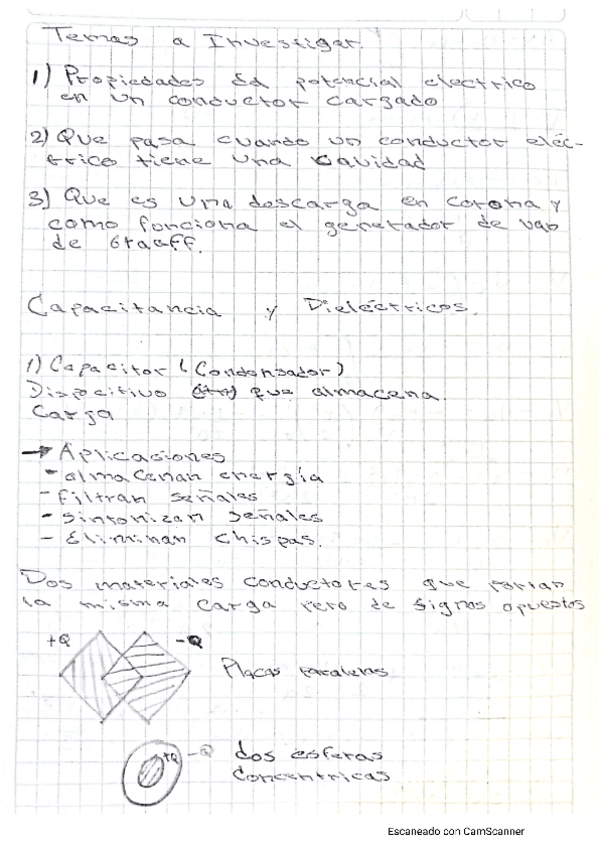 Temas a Investigar.
1) Propiedades del potencial electrico
en un conductor cargado
2) Que pasa cuando un conductor eléc-
trico tiene una cavidad
3) Que es una descarga en corona y
como funciona el generador de van
de Graaff.
Capacitancia y Dieléctricos.
1) Capacitor (Condensador)
Dispocitivo que almacena
Carga
→ Aplicaciones
- almacenan energía
- filtran señales
- sintonizan señales
- Eliminan chispas.
Dos materiales conductores que
la misma carga pero de signos opuestos
+Q -Q
Placas paralelas
+Q -Q dos esferas
concentricas
Escaneado con CamScanner